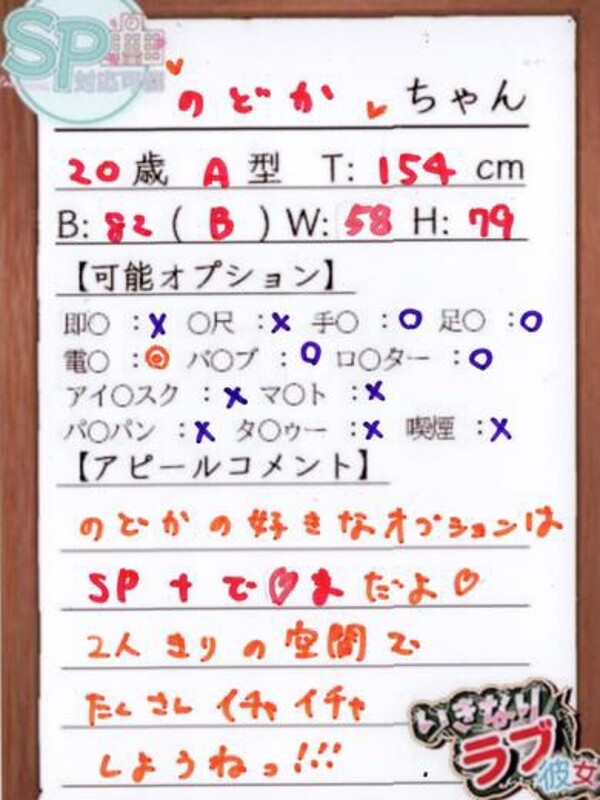 SP
対応可能
のどか ちゃん
20歳 A型 T: 154 cm
B: 82 ( B ) W: 58 H: 79
【可能オプション】
即○ :× ○尺 :× 手○ :○ 足○ :○
電○ :◎ バ○ブ :○ ロ○ター :○
アイ○スク :× マ○ト :×
パ○パン :× タ○ゥー :× 喫煙 :×
【アピールコメント】
のどかの好きなオプションは
SP+で♡まだよ♡
2人きりの空間で
たくさんイチャイチャ
しようねっ!!!
いきなり
ラブ彼女